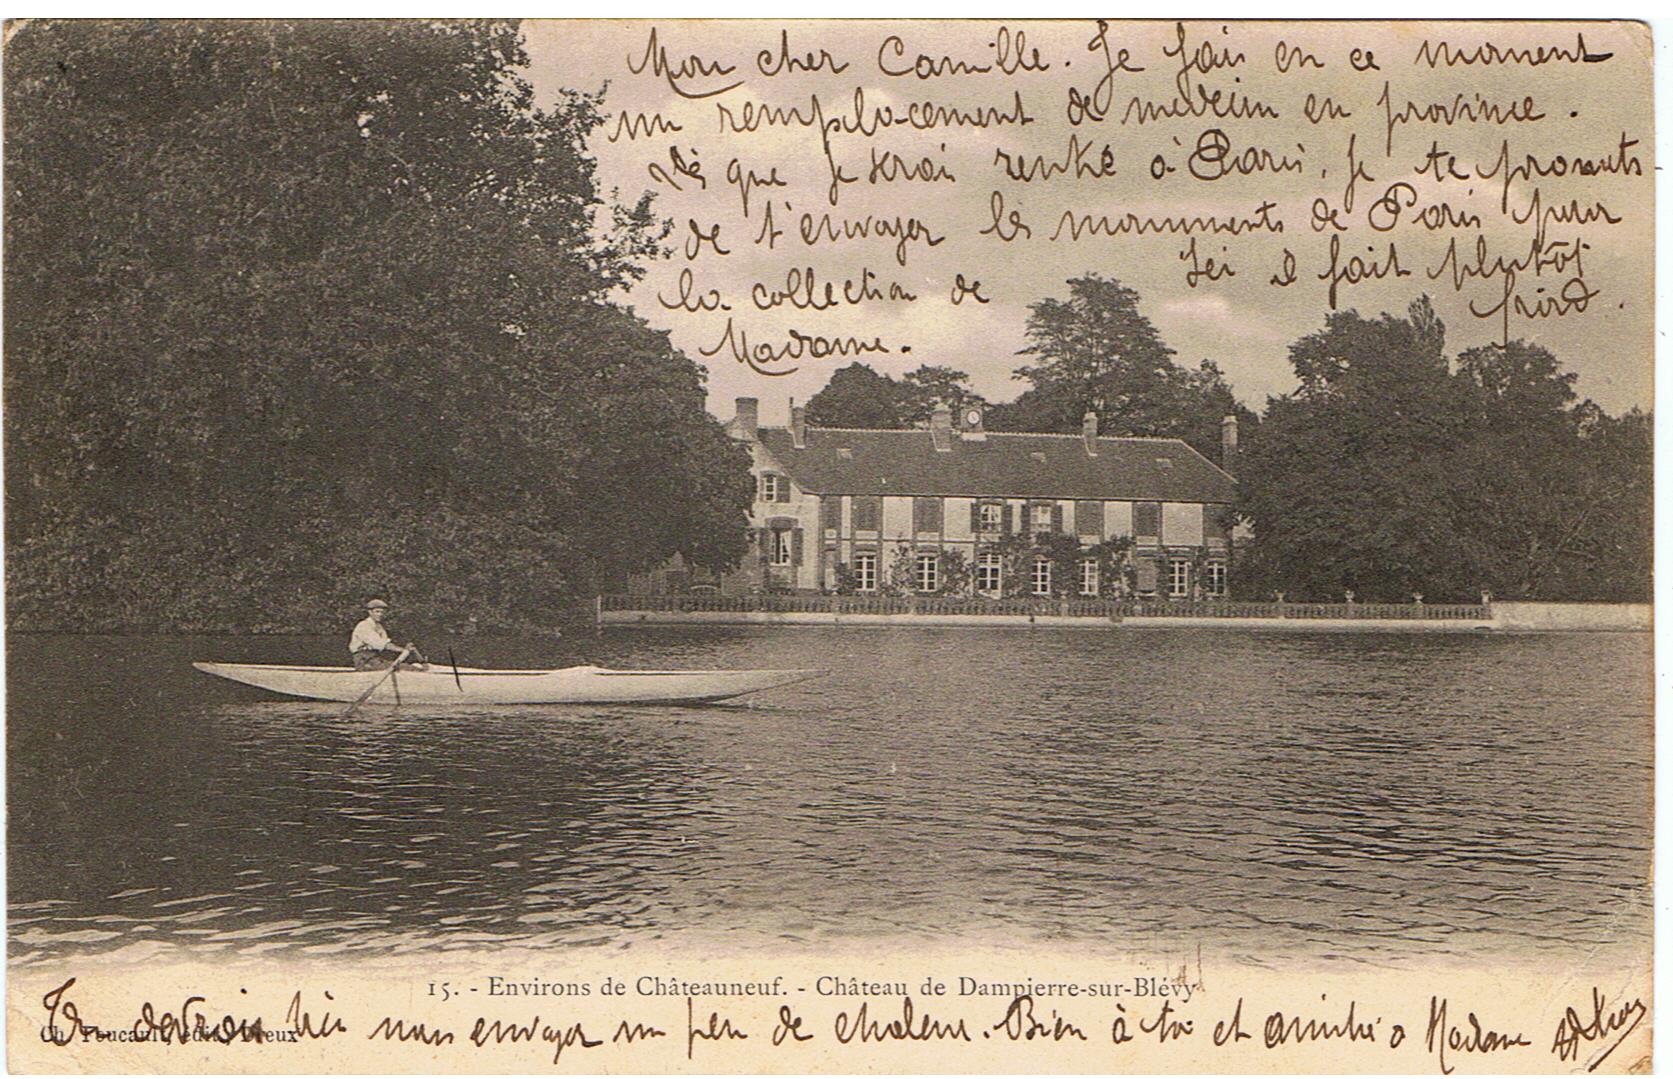 Mon cher Camille. Je fais en ce moment
un remplacement de medecin en province.
Dès que je serai rentré à Paris, je te promets
de t'envoyer les monuments de Paris pour
la collection de
Madame.
Ici il fait plutôt
froid.
15. - Environs de Châteauneuf. - Château de Dampierre-sur-Blévy
Tu devrais bien nous envoyer un peu de chaleur. Bien à toi et amitié à Madame
Ch. Foucault, édit., Dreux